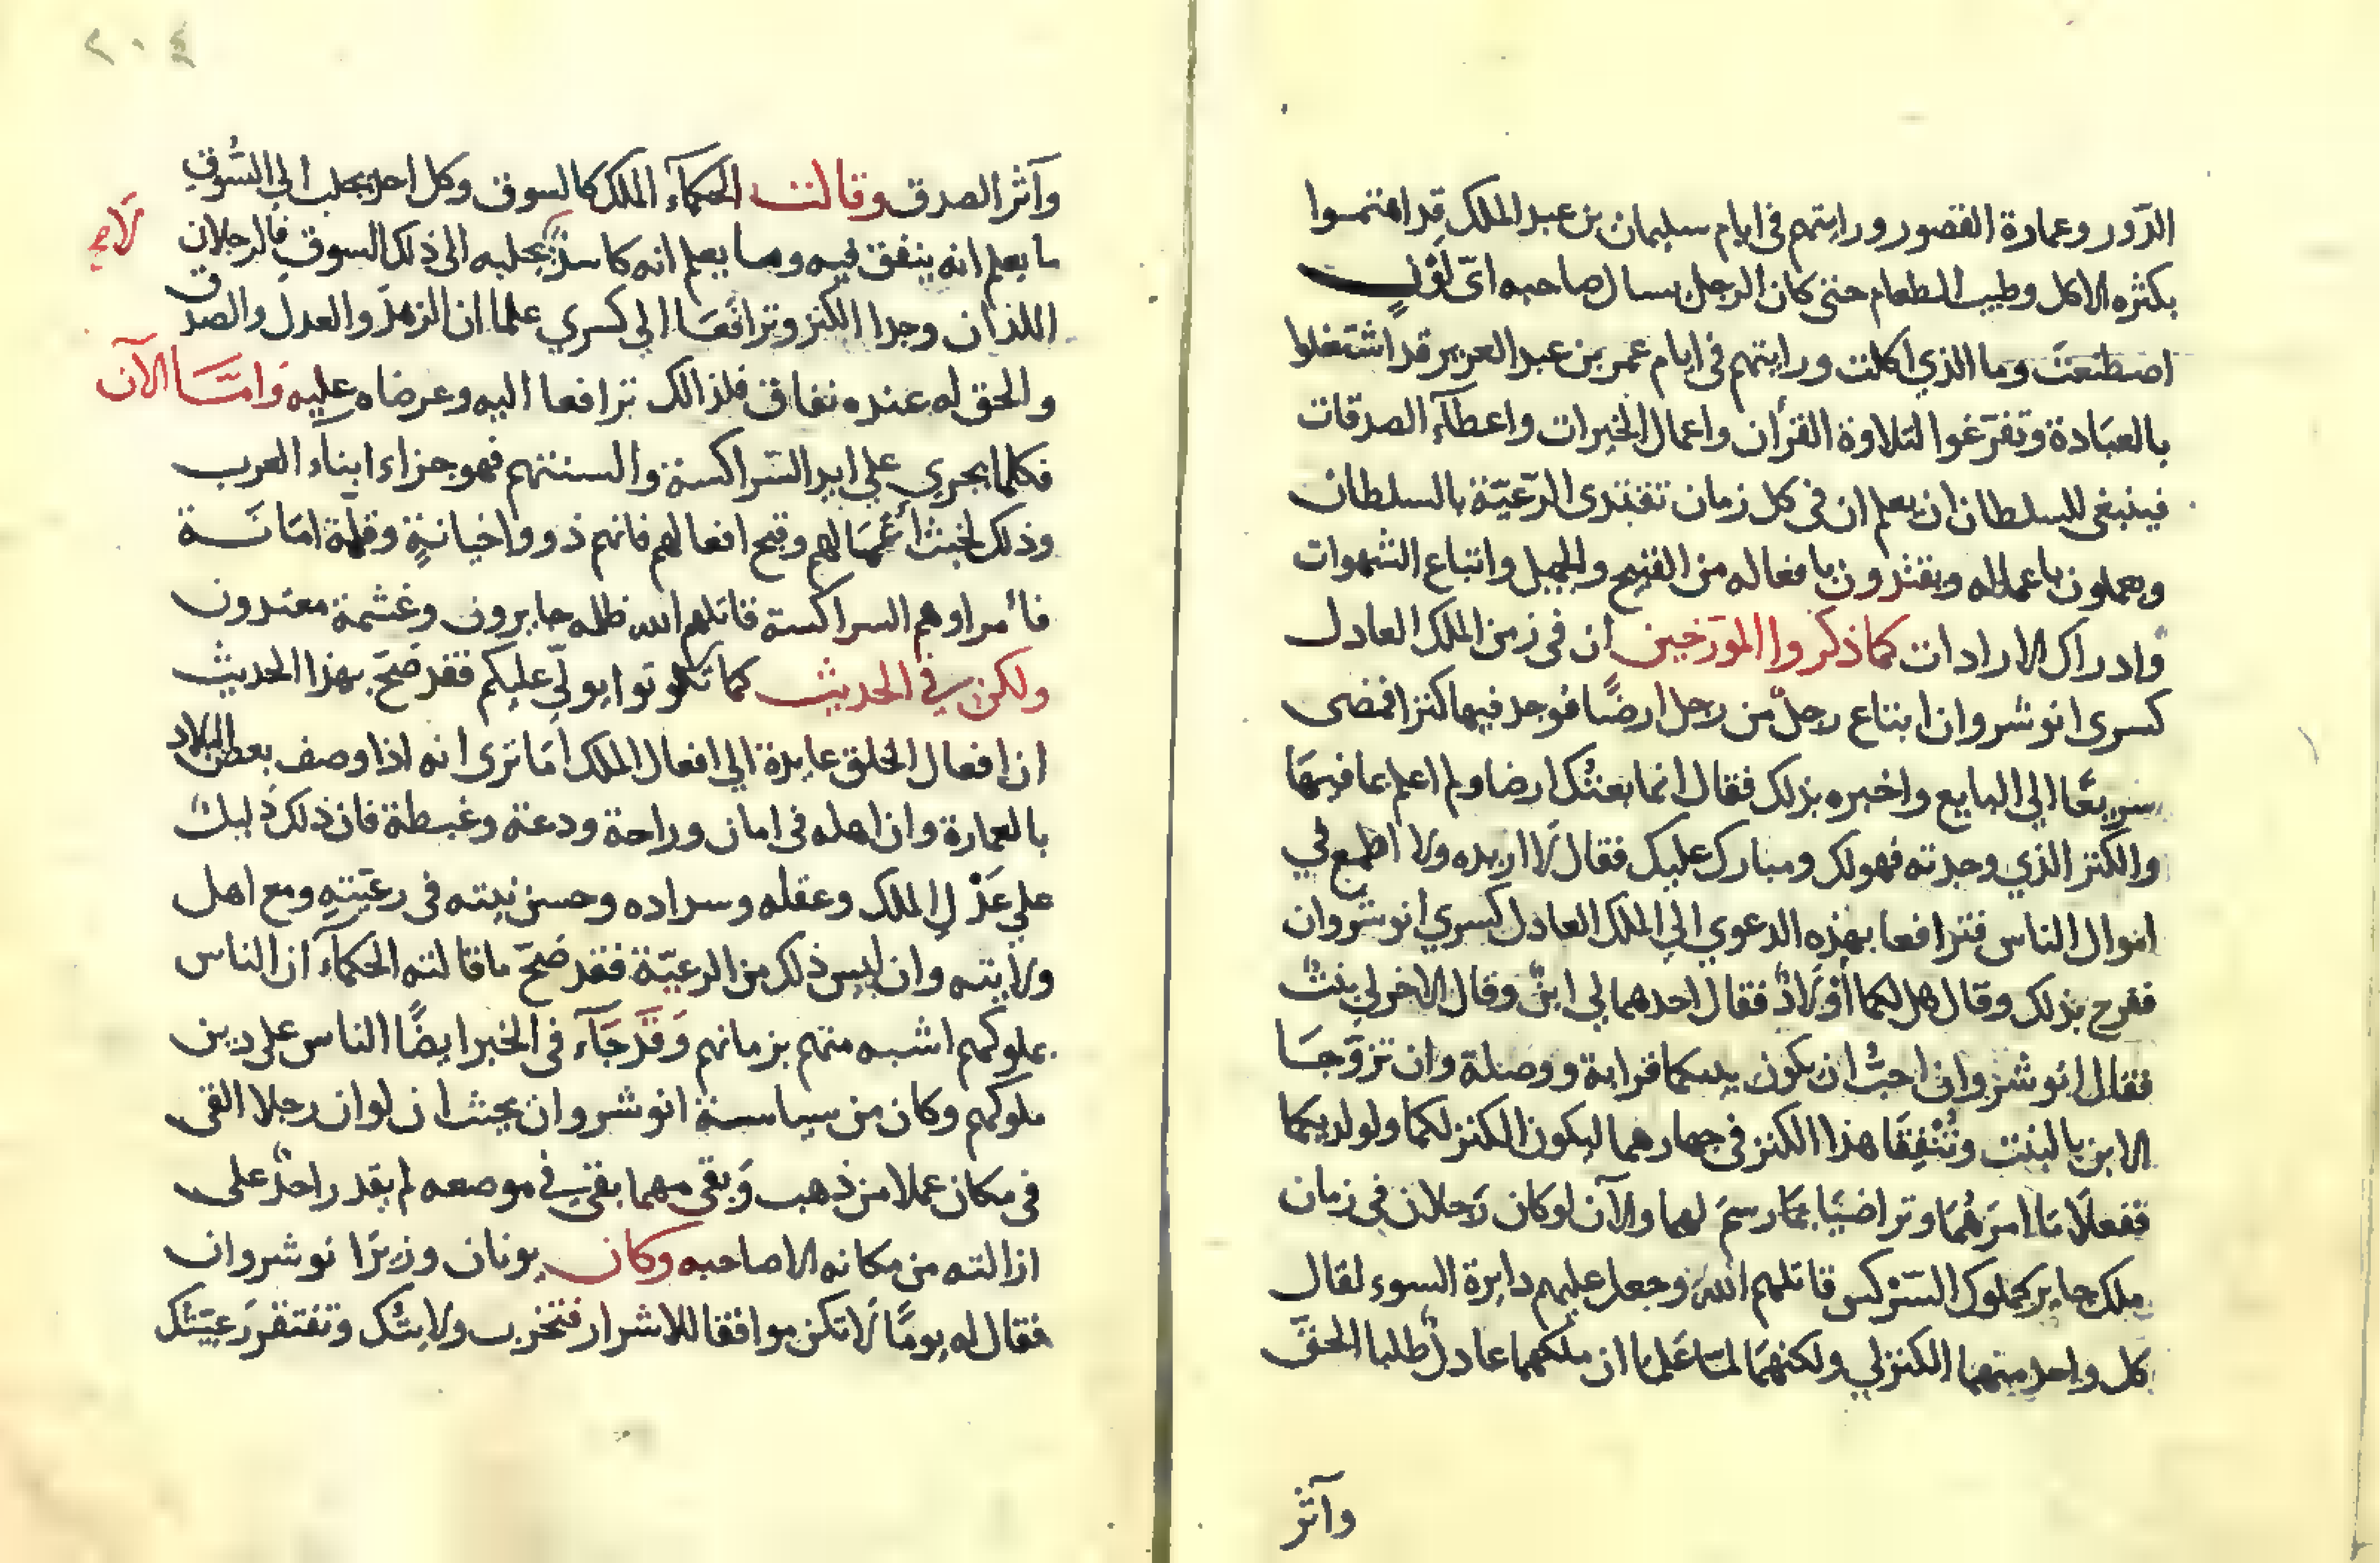 الدّور وعمارة القصور ورايتهم فى ايام سليمان بن عبد الملك قد اهتموا
بكثره الاكل وطيب الطعام حتى كان الرجل يسال صاحبه اىّ لونٍ
اصطنعتَ وما الذي اكلت ورايتهم فى ايام عمر بن عبد العزيز قد اشتغلوا
بالعبَادة وتفرّغوا لتلاوة القرأن واعمال الخيرات واعطآء الصدقات
فينبغى للسلطان ان يعلم ان فى كل زمان تقتدى الرّعيّة بالسلطان
ويعملون باعماله ويقتدون بافعاله من القبيح والجميل واتباع الشهوات
وادراك الارادات كما ذكروا المورّخين ان فى زمن الملك العادل
كسرى انوشروان ابتاع رجلٌ من رجل ارضًا فوجد فيها كنزا فمضى
سريعًا الي البايع واخبره بذلك فقال انما بعتُك ارضا ولم اعلم بما فيهَا
والكنز الذي وجدته فهو لك ومبارك عليك فقال لَا اريده ولا اطمع في
اموال الناس فترافعا بهذه الدعوي الي الملك العادل كسري انوشروان
ففرح بذلك وقال هل لكما أوْلَادٌ فقال احدهما لي ابنٌ وقال الاخر لي بنتٌ
فقال انوشروان احبُّ ان يكون بينكما قرابة ووصلة وان تزوّجَا
الابن بالبنت وتُنْفِقَا هذا الكنز فى جهازهما ليكون الكنز لكما ولولديكما
ففعلَا مَا امرَهُمَا وتراضيَا بمَا رسمَ لهما والآن لو كان رَجلان في زمان
ملك جاير كملوك السَّرْكس قاتلهم اللهُ وجعل عليهم دايرة السوء لقال
كل واحد منهما الكنز لي ولكنهمَا لمّا عَلِمَا ان ملكهما عادلٌ طلبا الحقّ
وآثر
٢٠٤
وآثر الصدق وقالت الحكمآء الملك كالسوق وكل احد يجلب الي السُّوقِ
ما يعلم انه ينفق فيه وما يعلم انه كاسدٌ يجلبه الى ذلك السوق فالرجلان
لَا
اللذان وجدا الكنز وترافعَا الي كسري علما ان الزهدَ والعدل والصدق
والحق له عنده نفاق فلذالك ترافعا اليه وعرضاه عليه وَامّا الآن
فكلما يجري علي ايد السّراكسة والسنتهم فهو جزاء ابناء العرب
وذلك لخبث أعْمَالهم وقبح افعالهم فانهم ذووا خيانةٍ وقلة امَانَة
فأمراوهم السراكسة قاتلهم الله ظلمه جايرون وغشمة معتدون
ولكن في الحديث كما تكونوا يولّي عليكم فقد صَحّ بهذا الحديث
ان افعال الخلق عايدة الي افعال الملك امَا ترى انه اذا وصف بعض البلاد
بالعمارة وان اهله فى امان وراحة ودعة وغبطة فان ذلك دَليلٌ
علي عَدْلِ الملك وعقله وسداده وحسن نيته فى رعيّتهِ ومع اهل
ولايته وان ليس ذلك من الرعيّة فقد صَحّ ما قالته الحكمآء ان الناس
بملوكهم اشبه منهم بزمانهم وَقَدْ جَآء فى الخبر ايضًا الناس على دين
ملوكهم وكان من سياسة انوشروان بحيث ان لو ان رجلا القى
فى مكان عملا من ذهب وَبقي مهما بقي في موضعه لم يقدر احدٌ على
ازالته من مكانه الا صاحبه وكان يونان وزيرَا نوشروان
فقال له يومًا لَا تكن موافقا للاشرار فتخرب ولايتُك وتفتقر رَعيّتك